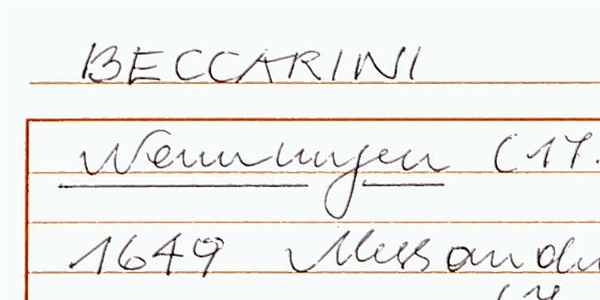 BECCARINI
Wemmingen (17.
1649 Alessandr